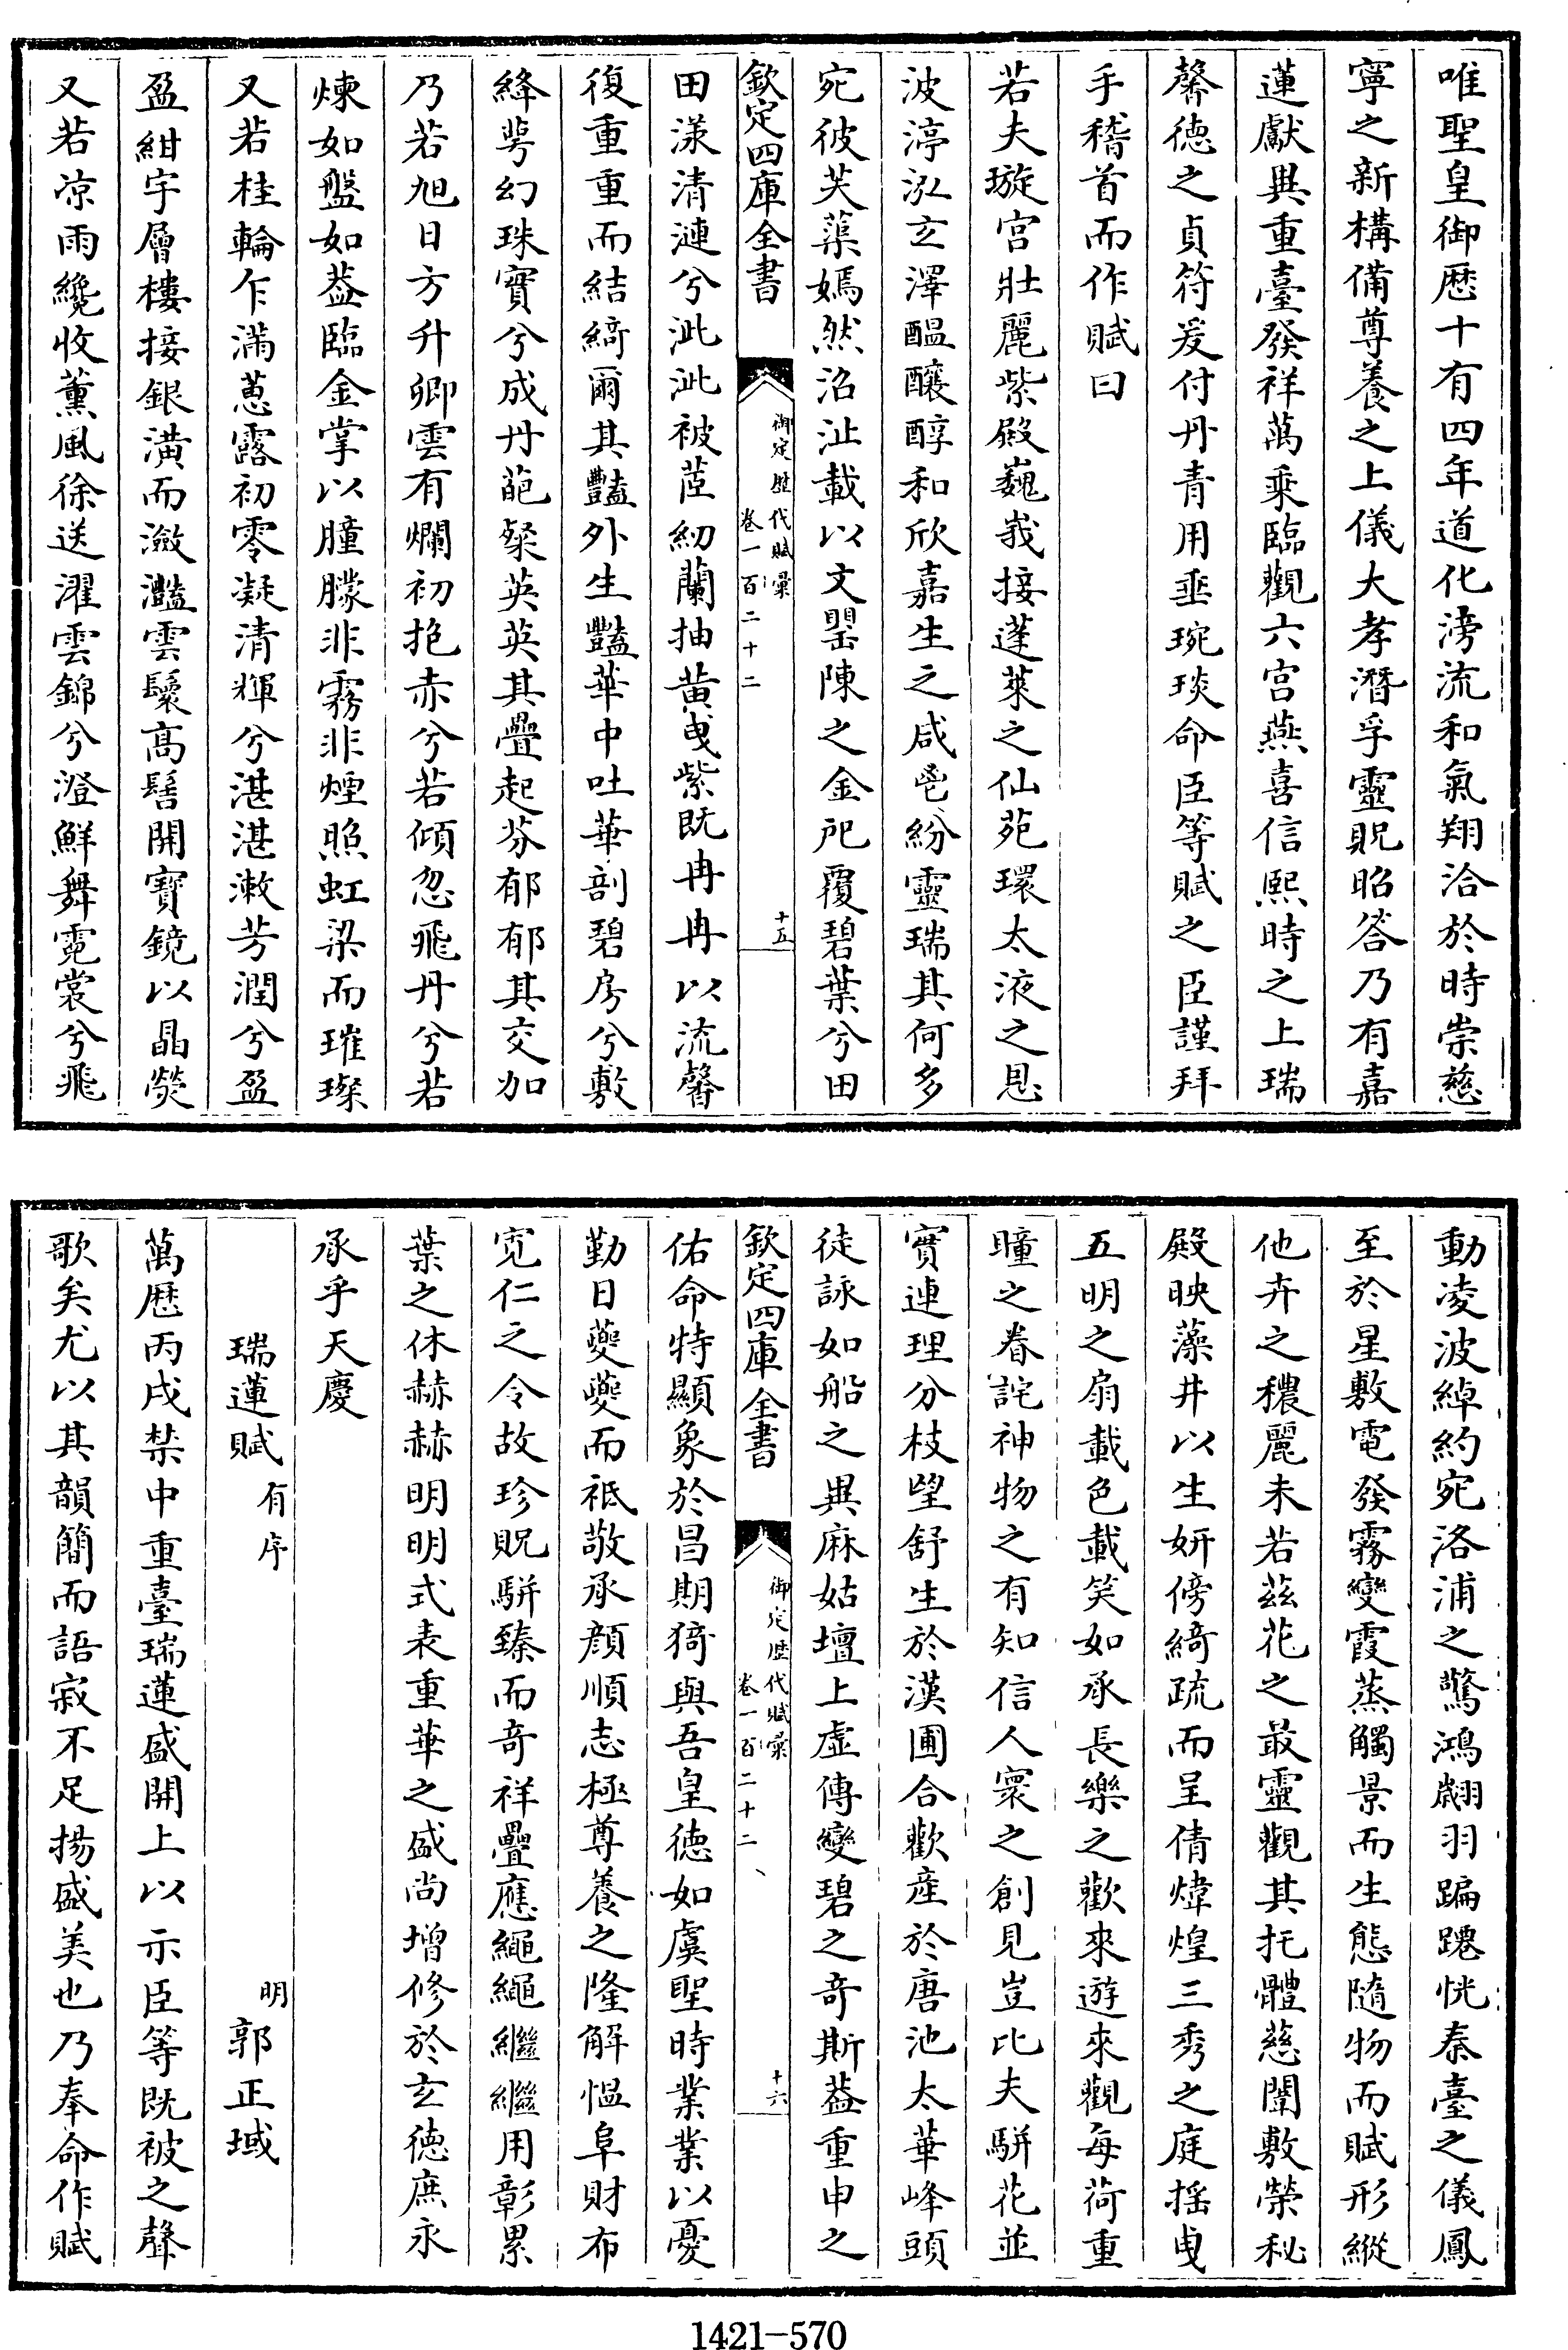 唯聖皇御歴十有四年道化滂流和氣翔洽於時崇慈
寧之新構備尊養之上儀大孝潛孚靈貺昭答乃有嘉
蓮獻異重臺發祥萬乗臨觀六宫燕喜信熙時之上瑞
馨徳之貞符爰付丹青用垂琬琰命臣等賦之臣謹拜
手稽首而作賦曰
若夫璇宫壯麗紫殿巍峩接蓬萊之仙苑環太液之恩
波渟泓玄澤醖釀醇和欣嘉生之咸鬯紛靈瑞其何多
宛彼芙蕖嫣然沼沚載以文罌陳之金戺覆碧葉兮田
欽定四庫全書
御定歴代賦彙
卷一百二十二
十五
田漾清漣兮泚泚被茝紉蘭抽黄曵紫既冉冉以流馨
復重重而結綺爾其豔外生豔華中吐華剖碧房兮敷
絳萼幻珠實兮成丹葩粲英英其疊起芬郁郁其交加
乃若旭日方升卿雲有爛初抱赤兮若傾忽飛丹兮若
煉如盤如葢臨金掌以朣朦非霧非煙照虹梁而璀璨
又若桂輪乍滿蔥露初零凝清輝兮湛湛漱芳潤兮盈
盈紺宇層樓接銀潢而瀲灩雲鬟髙髻開寶鏡以晶熒
又若凉雨纔收薰風徐送濯雲錦兮澄鮮舞霓裳兮飛
動凌波綽約宛洛浦之驚鴻翽羽蹁躚恍秦臺之儀鳳
至於星敷電發霧變霞蒸觸景而生態隨物而賦形縱
他卉之穠麗未若兹花之最靈觀其托體慈闈敷榮秘
殿映藻井以生妍傍綺疏而呈倩煒煌三秀之庭揺曵
五明之扇載色載笑如承長樂之歡來遊來觀每荷重
瞳之眷詫神物之有知信人寰之創見豈比夫駢花並
實連理分枝望舒生於漢圃合歡産於唐池太華峰頭
徒詠如船之異麻姑壇上虚傳變碧之奇斯葢重申之
欽定四庫全書
御定歴代賦彙
卷一百二十二
十六
佑命特顯象於昌期猗與吾皇徳如虞聖時業業以憂
勤日夔夔而祗敬承顔順志極尊養之隆解愠阜財布
寛仁之令故珍貺駢臻而奇祥疊應繩繩繼繼用彰累
葉之休赫赫明明式表重華之盛尚増修於玄徳庶永
承乎天慶
瑞蓮賦 有序 明 郭正域
萬歴丙戌禁中重臺瑞蓮盛開上以示臣等既被之聲
歌矣尤以其韻簡而語寂不足揚盛美也乃奉命作賦
1421-570